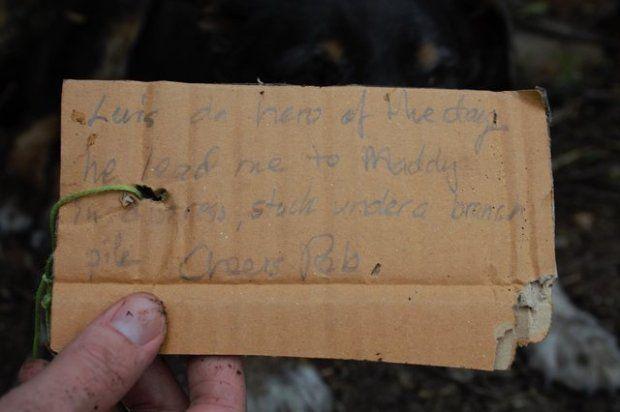 Luis da hero of the day
he lead me to Maddy
in distress, stuck under a branch
pile Cheers Bob.